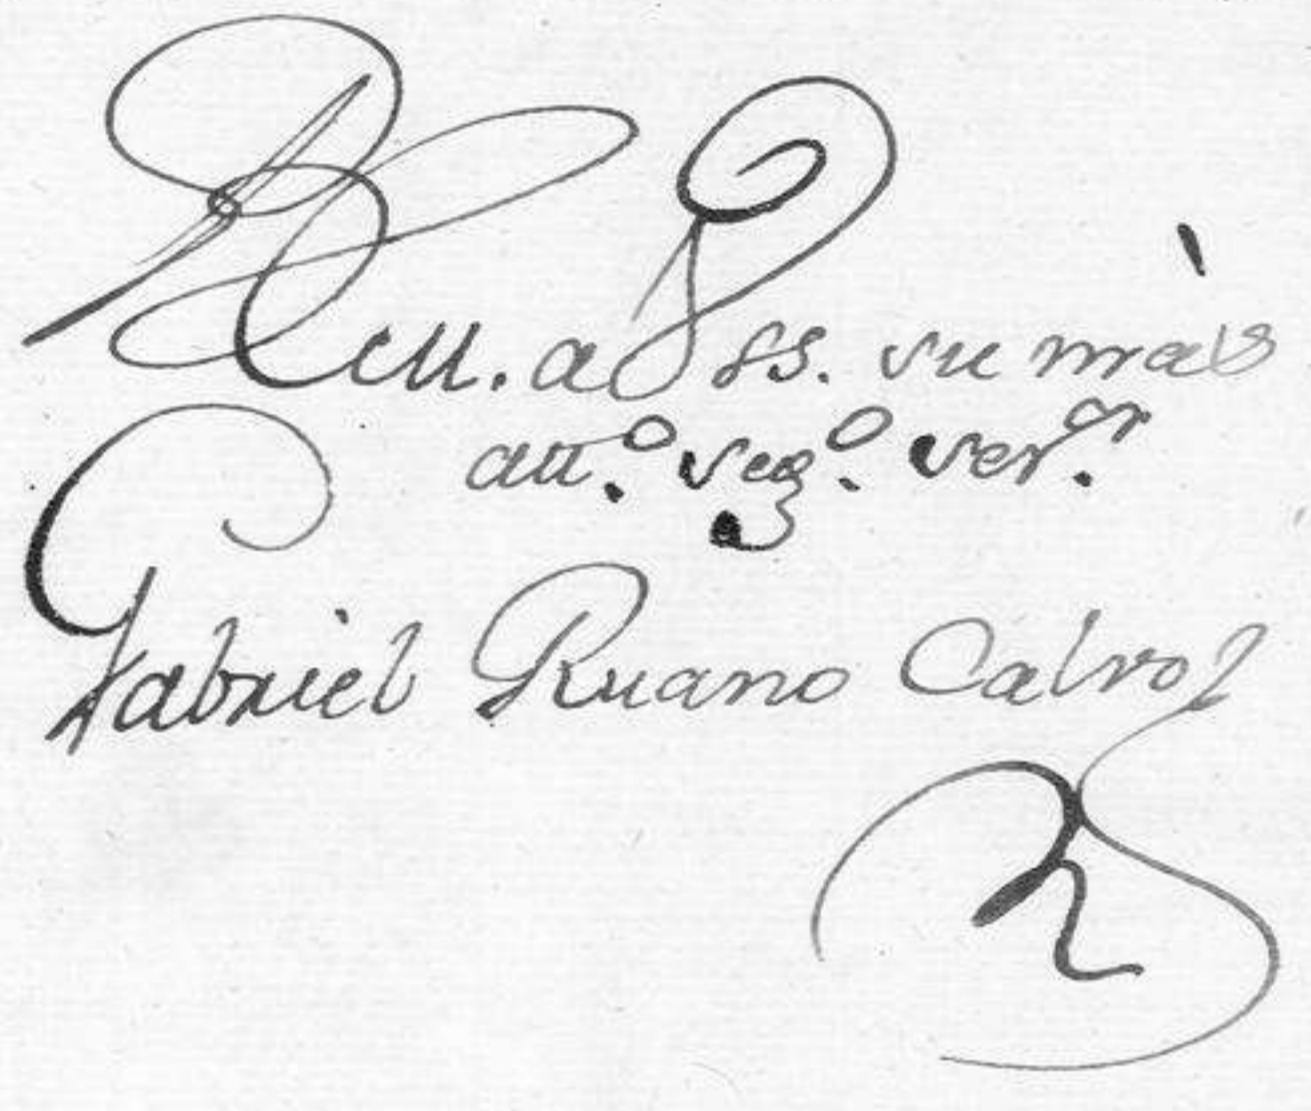 a Vss. su más
att.º seg.º ser.or
Gabriel Ruano Calvo